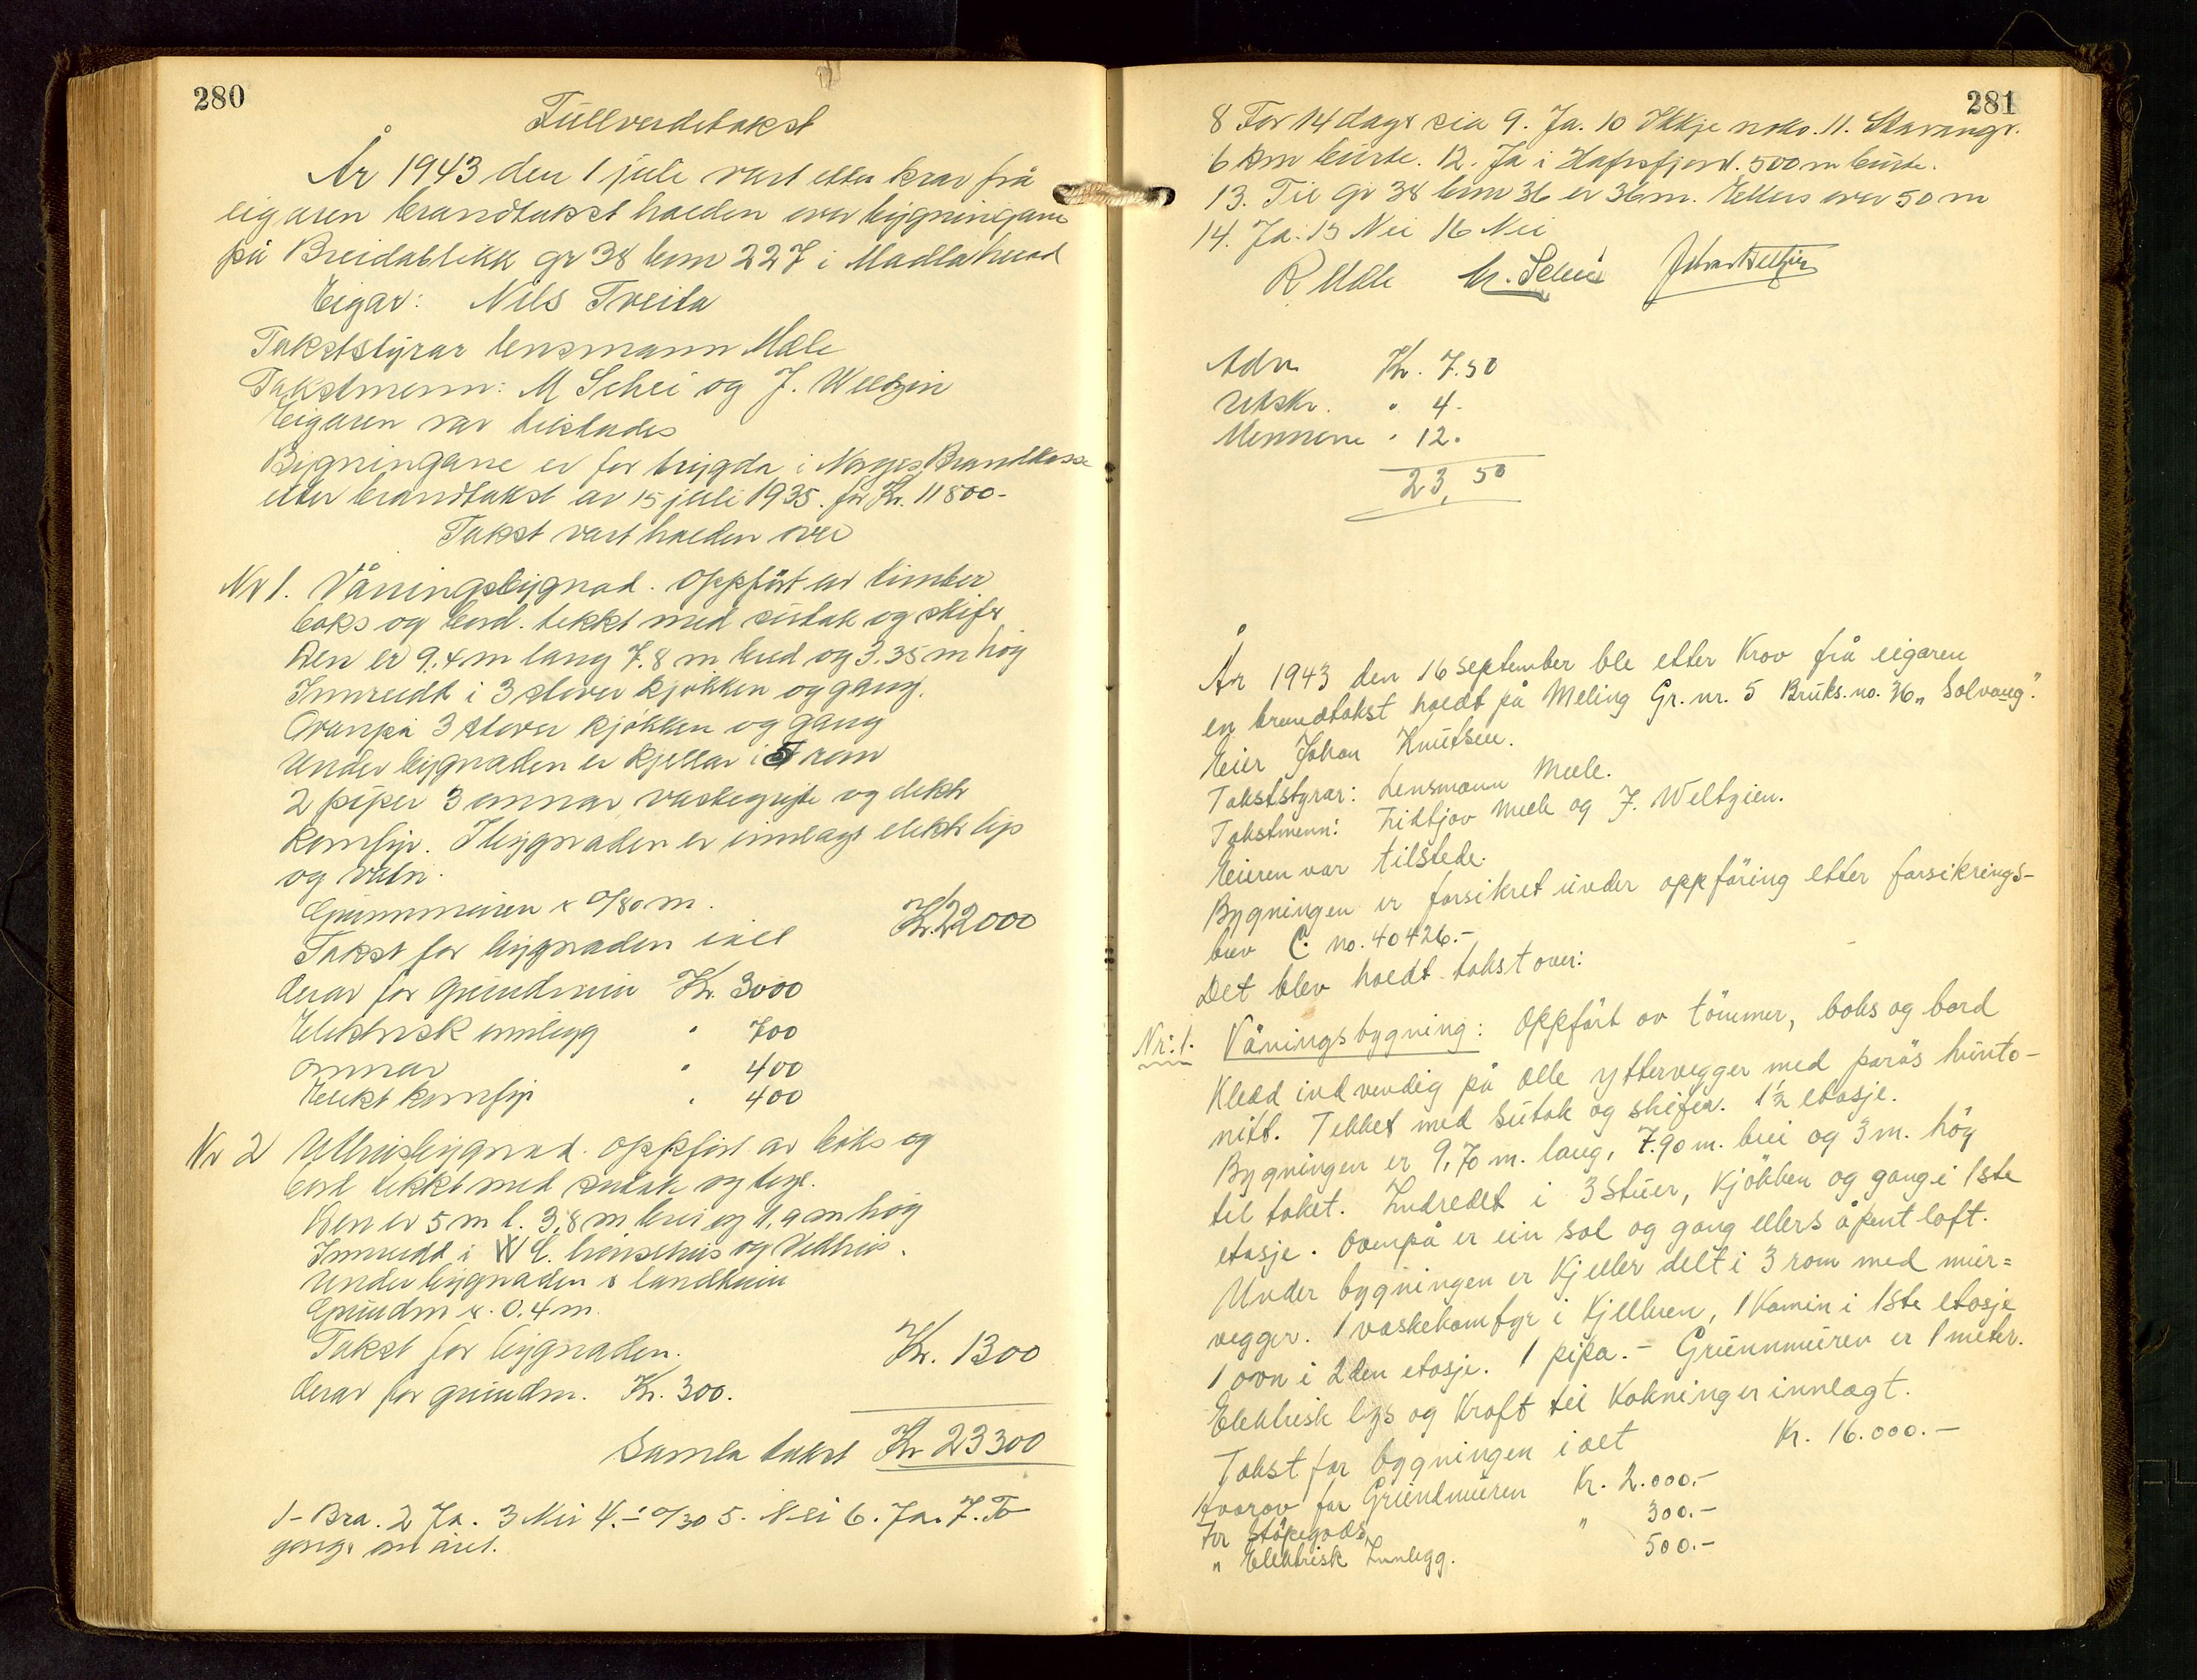 280
Fullverdetakst
År 1943 den 1 juli vart etter krav frå
eigaren brandtakst halden over bygningane
på Breidablikk gr 38 brn 227 i Madla herad
Eigar: Nils Tveita
Takststyrar lensmann Mæle
Takstmenn: M Schei og J. Weltzin
Eigaren var tilstades
Bygningane er for trygda i Norges Brandkasse
etter brandtakst av 15 juli 1935. for Kr. 11800-
Takst vart halden over
Nr 1. Våningsbygnad. Oppfört av timber
boks og bord. tekkt med sutak og skifr
Den er 9.4 m lang 7.8 m breid og 3.35 m hög
Innreidt i 3 stover kjökken og gang.
Ovanpå 3 stover kjökken og gang
Under bygnaden er kjellar i 5 rom
2 piper 3 omnar vaskegryte og elektr
komfyr. I bygnaden er innlagt elektr lys
og vatn.
Grunnmuren er 0/80 m.
Takst for bygnaden i alt Kr. 22000
derav for grundmur Kr. 3000
Elektrisk innlegg " 700
omnar " 400
Elekt komfyr " 400
Nr 2 Uthusbygnad. oppfört av boks og
bord tekkt med sutak og tegl.
Den er 5 m l. 3,8 m brei og 1,9 m hög
Innreidt i W C. hönsehus og Vedhus.
Under bygnaden er landkum
Grundm er. 0.4 m.
Takst for bygnaden. Kr. 1300
derav for grundm. Kr. 300.
Samla takst Kr 23300
1- Bra. 2 Ja. 3 Nei 4. - 0/30 5. Nei 6. Ja. 7. To
gongr om året.
281
8 For 14 dagr sia 9. Ja. 10 Ikkje noko. 11. Stavangr.
6 km burte. 12. Ja i Hafrsfjord. 500 m burte.
13. Til gr 38 brn 36 er 36 m. Ellers over 50 m
14. Ja. 15 Nei 16 Nei
R Mæle M. Schei Johan Weltzien
Adv. Kr. 7.50
Utskr. " 4.
Mennene " 12.
23,50
År 1943 den 16 september ble etter Krav frå eigaren
en branntakst holdt på Meling Gr. nr. 5 Bruks. no. 36 „Solvang".
Eier Johan Knutsen.
Takststyrar: Lensmann Mæle.
Takstmenn: Fridtjov Mæle og J. Weltzien.
Eieren var tilstede.
Bygningen er forsikret under oppföring etter forsikrings-
brev C. no. 40426.-
Det blev holdt takst over:
Nr. 1. Våningsbygning: Oppfört av tömmer, boks og bord
Kledd indvendig på alle yttervegger med porös hunto-
nitt. Tekket med sutak og skifer. 1½ etasje.
Bygningen er 9,70 m. lang, 7.90 m. brei og 3 m. hög
til taket. Indredet i 3 stuer, Kjökken og gang i 1ste
etasje. Ovenpå er ein sal og gang ellers åpent loft.
Under bygningen er Kjeller delt i 3 rom med mur=
vegger. 1 vaskekomfyr i Kjelleren, 1 Kamin i 1ste etasje
1 ovn i 2den etasje. 1 pipa. - Grunnmuren er 1 meter.
Elektrisk lys og Kraft til Kokning er innlagt.
Takst for bygningen i alt Kr. 16.000.-
Hvorav for Grundmuren Kr. 2.000.-
For Støpegods " 300.-
" Elektrisk Innlegg. 500.-